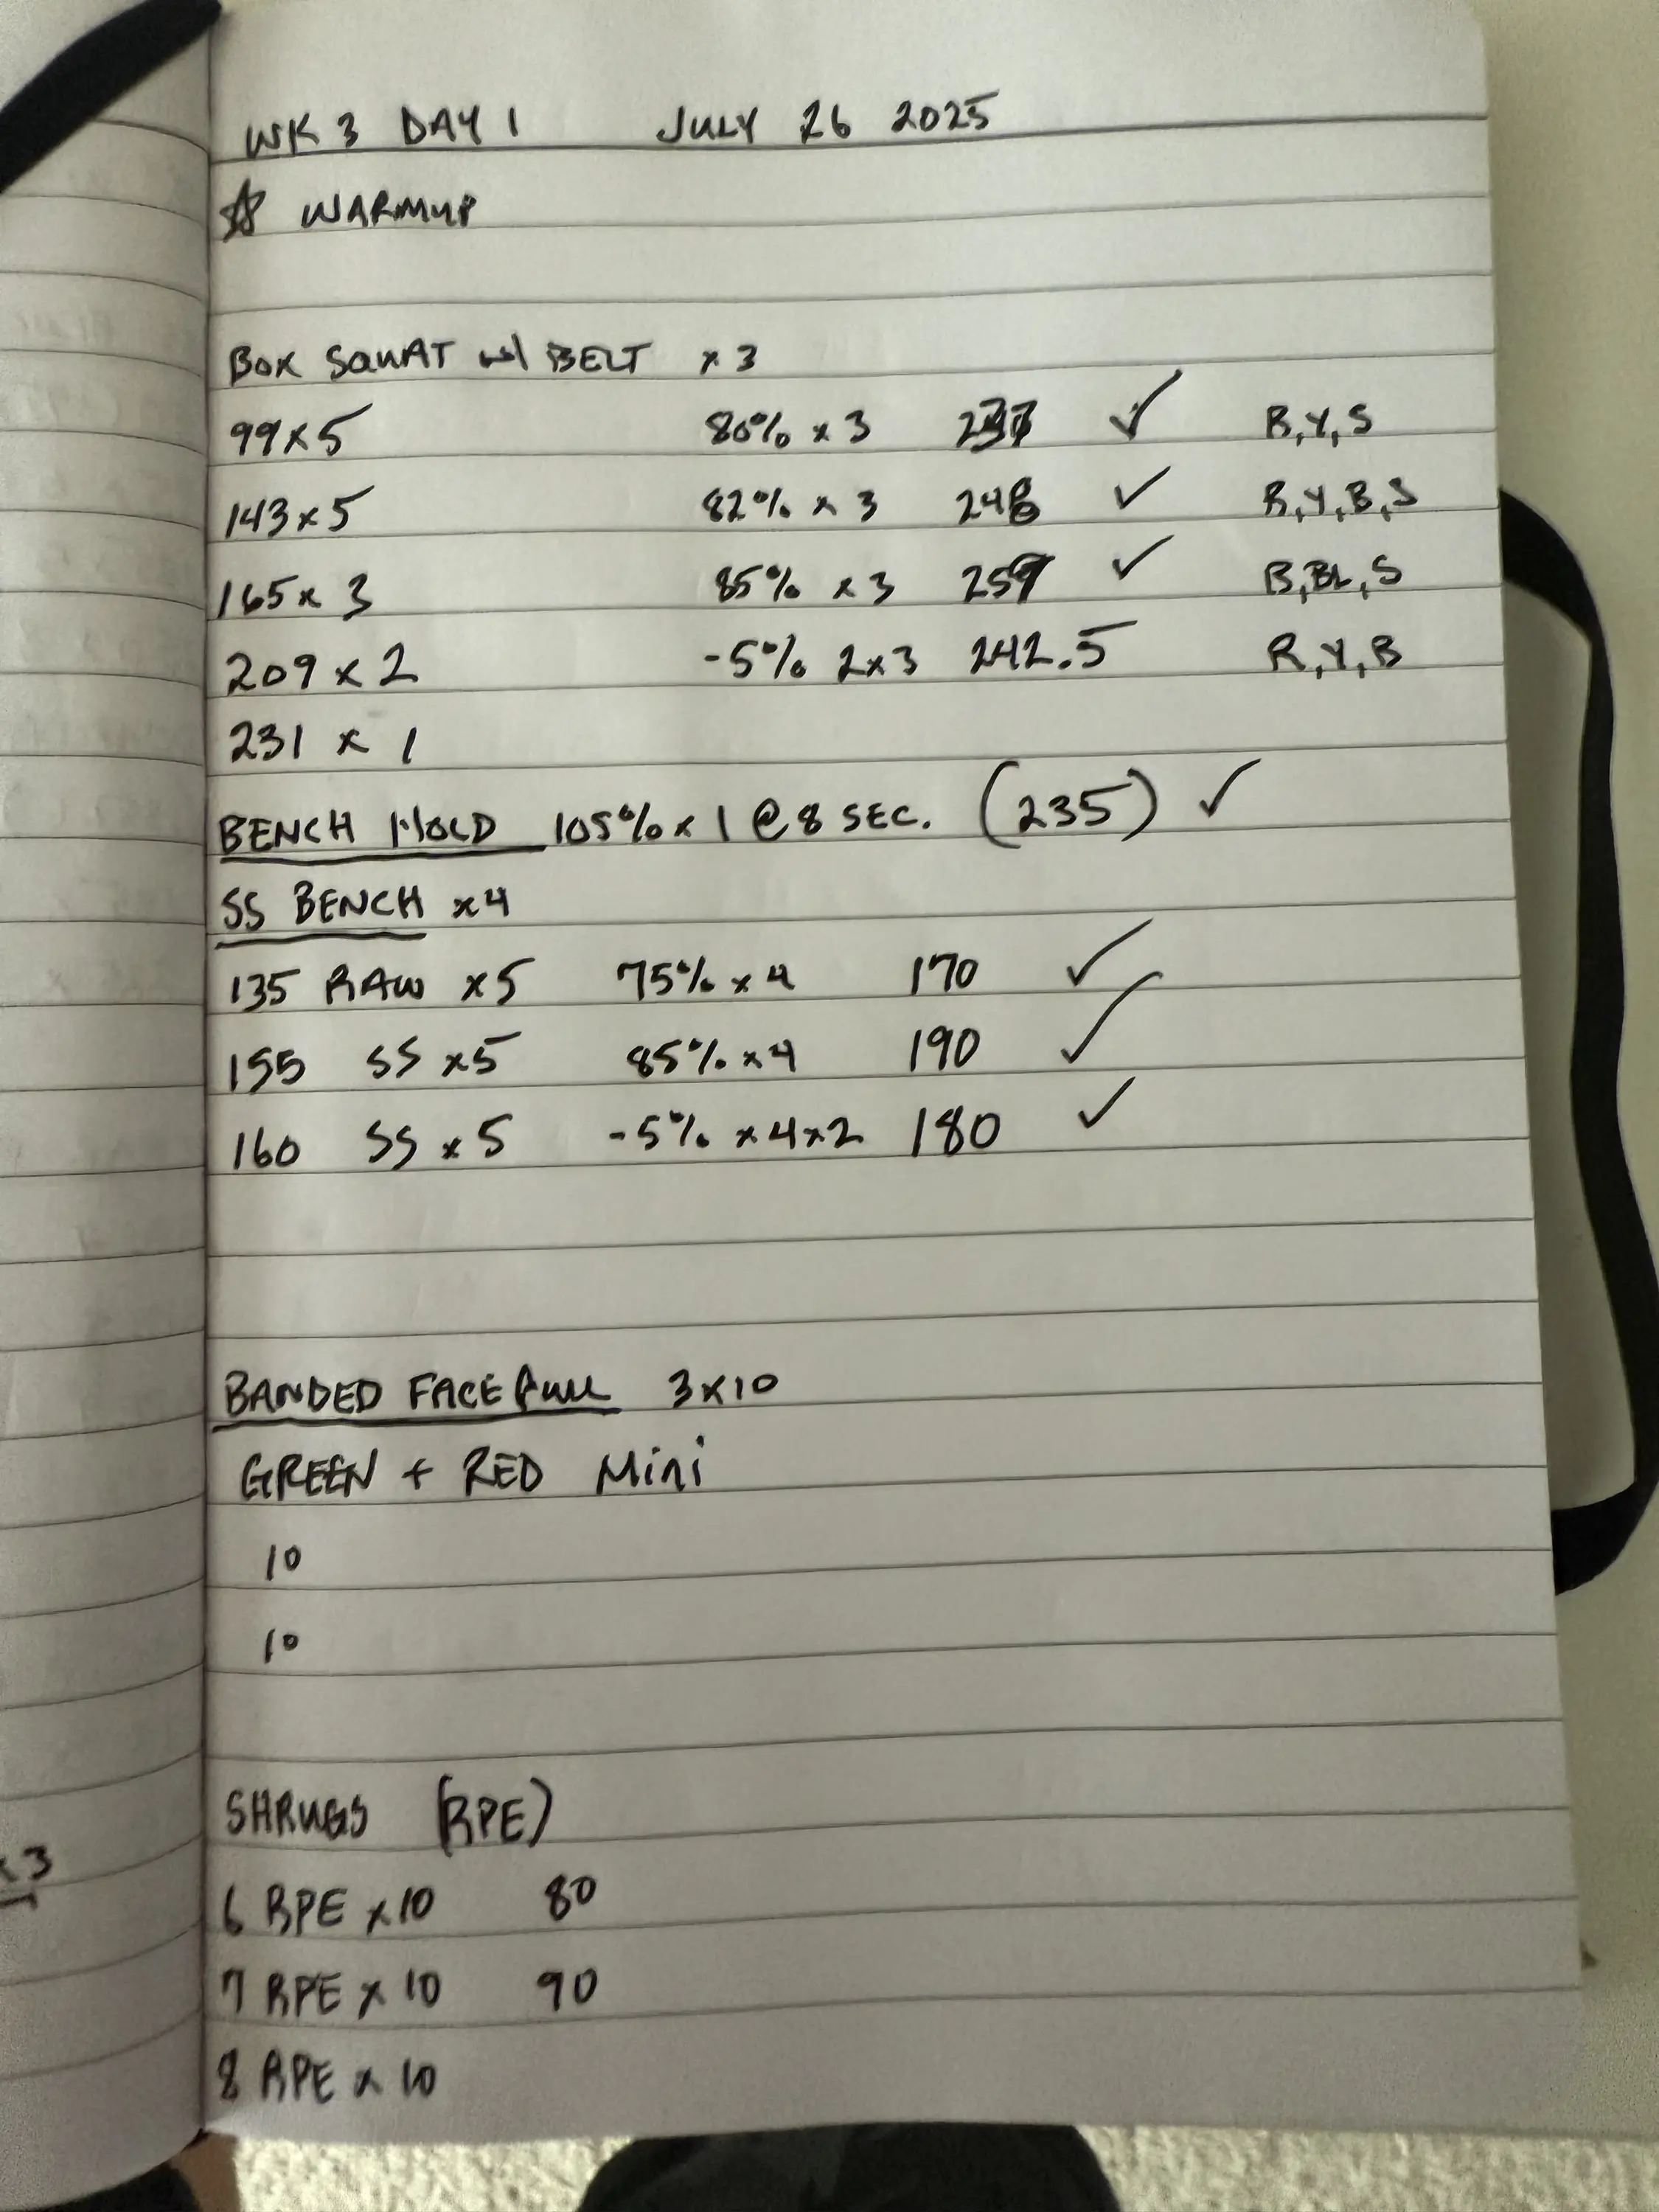 WK 3 DAY 1 JULY 26 2025
☆ WARMUP
BOX SQUAT w/ BELT x 3
99 x 5 80% x 3 237 ✓ R,Y,S
143 x 5 82% x 3 248 ✓ R,Y,B,S
165 x 3 85% x 3 259 ✓ B,BL,S
209 x 2 -5% 2x3 242.5 R,Y,B
231 x 1
BENCH HOLD 105% x 1 @ 8 SEC. (235) ✓
SS BENCH x4
135 RAW x5 75% x 4 170 ✓
155 SS x5 85% x 4 190 ✓
160 SS x 5 -5% x 4 x 2 180 ✓
BANDED FACE PULL 3 x 10
GREEN + RED Mini
10
10
SHRUGS (RPE)
x3
6 RPE x 10 80
7 RPE x 10 90
8 RPE x 10